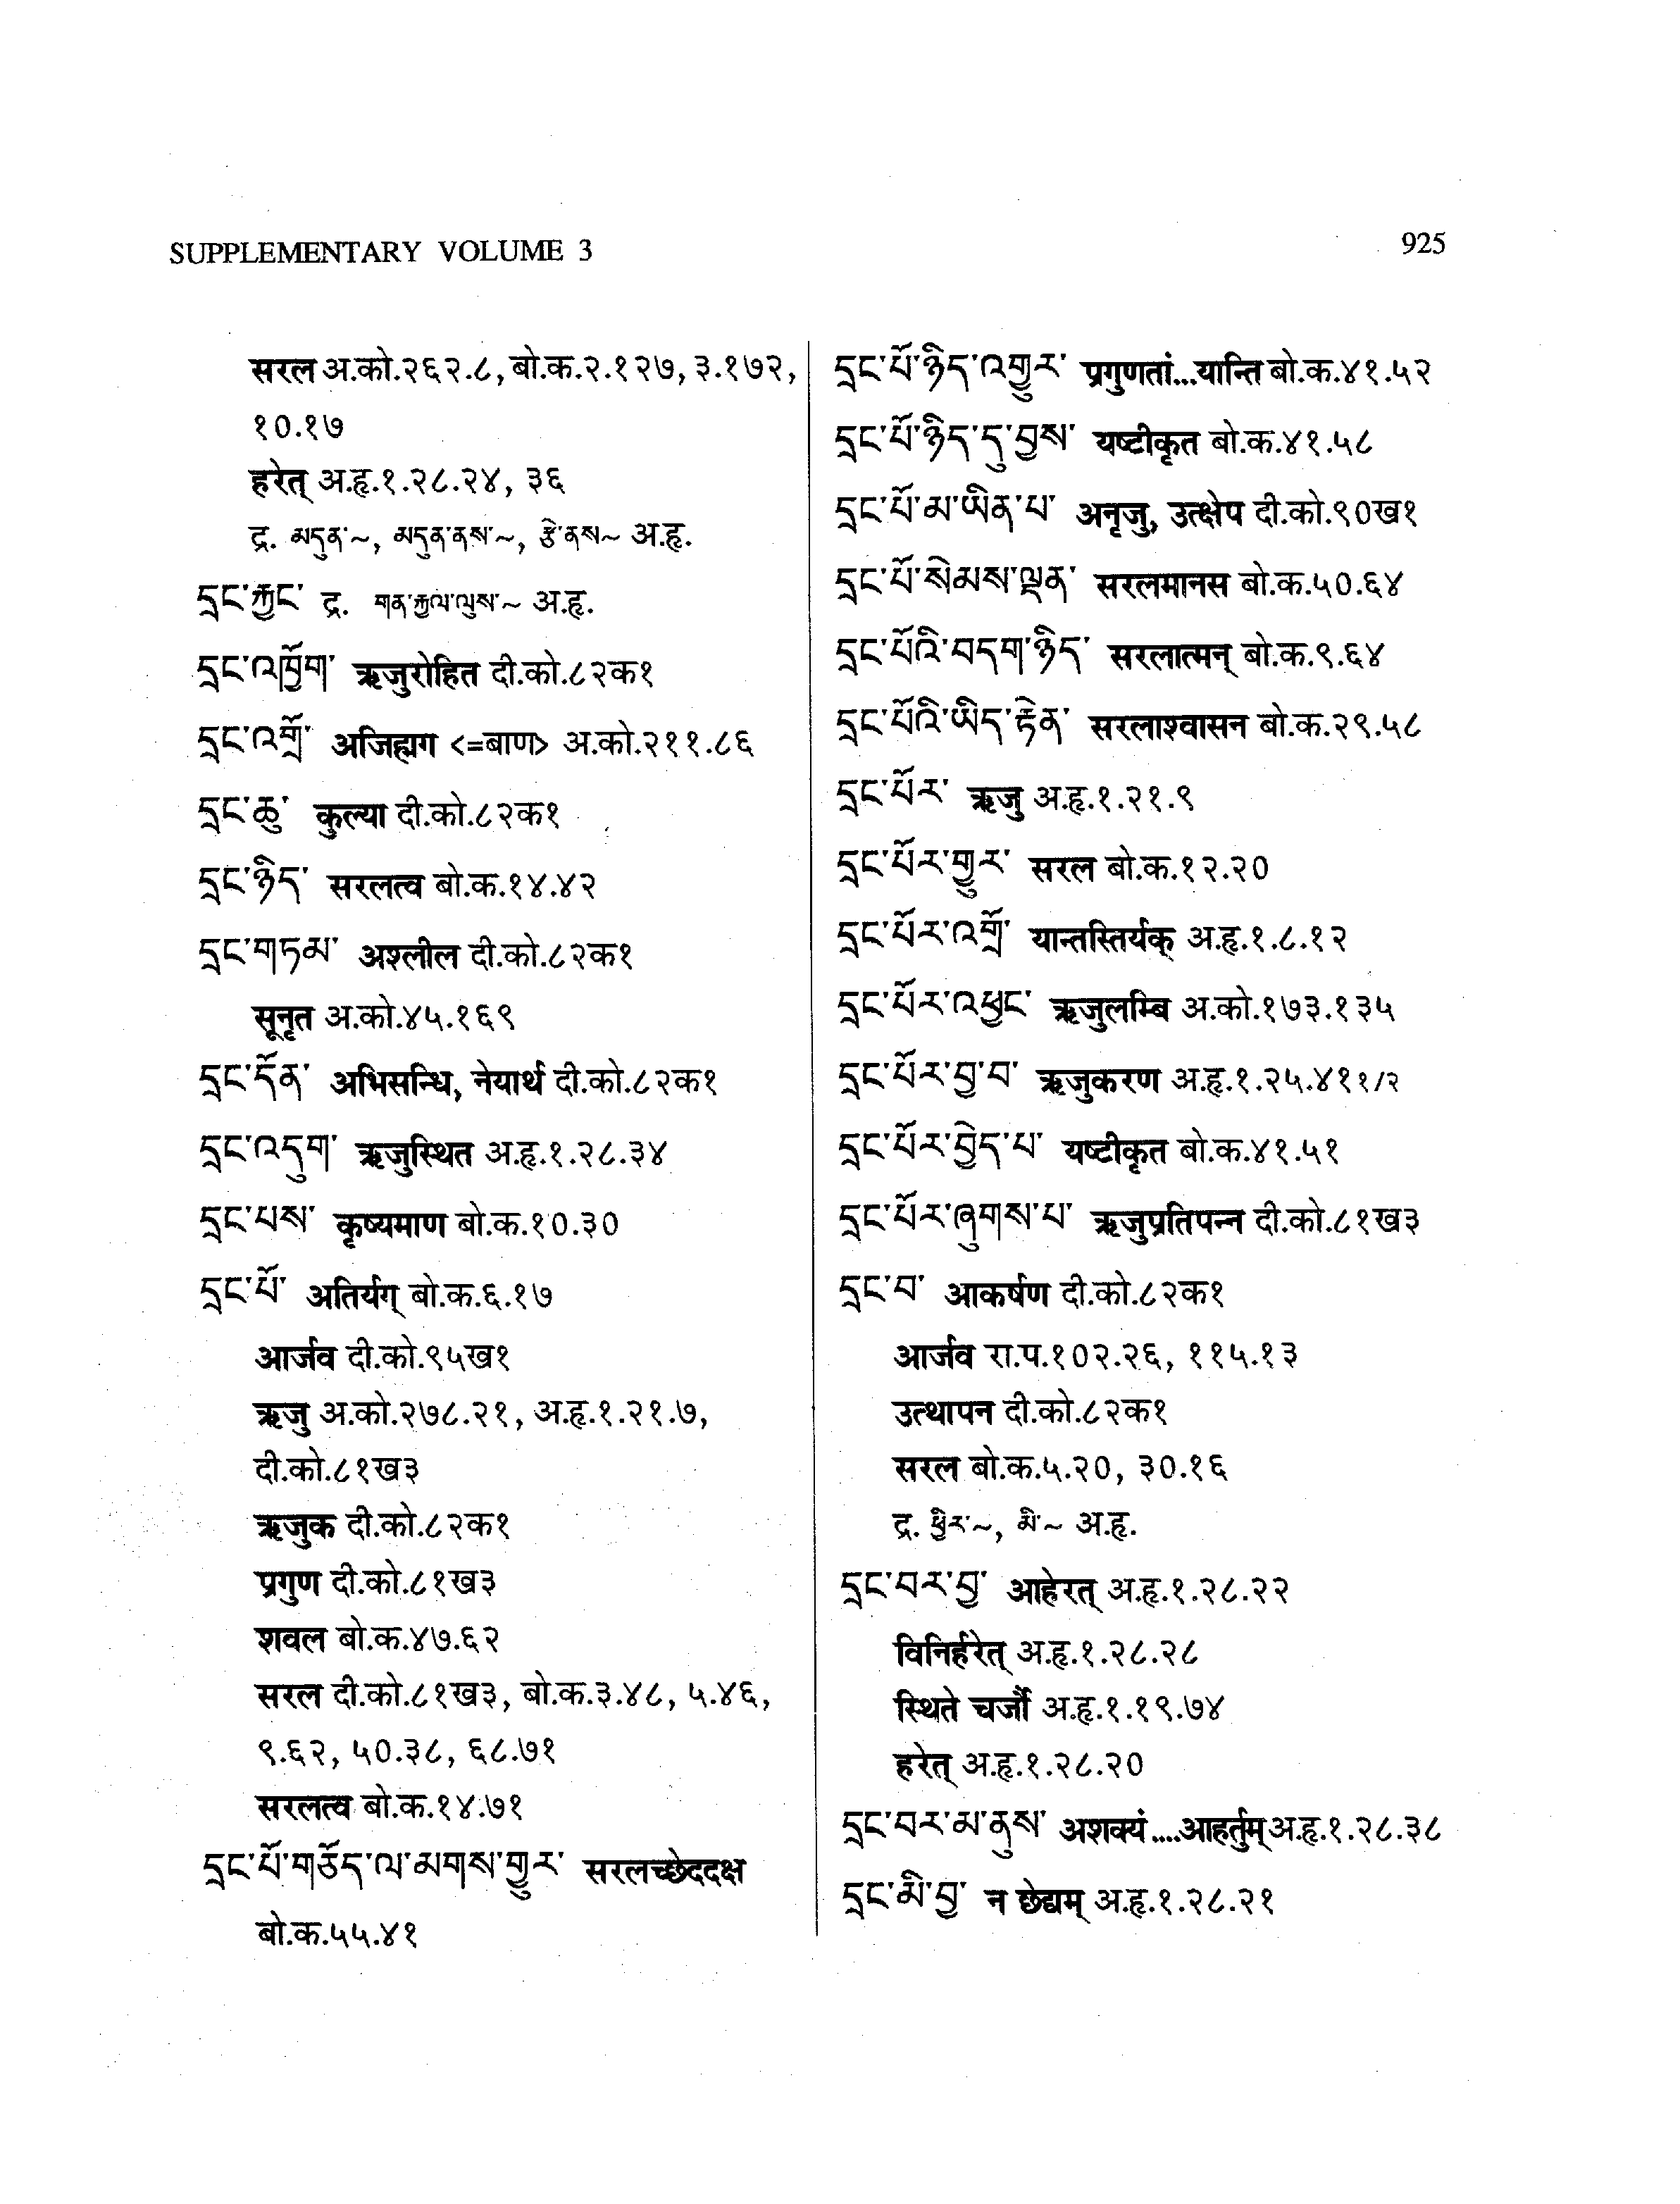 SUPPLEMENTARY VOLUME 3
925
सरल अ.को.२६२.८, बो.क.२.१२७, ३.१७२,
१०.१७
हरेत् अ.हृ.१.२८.२४, ३६
द्र. མདུན་~, མདུན་ནས་~, རྩེ་ནས~ अ.हृ.
དྲང་རྐྱང་ द्र. གན་རྐྱལ་ལུས་~ अ.हृ.
དྲང་འཁྱོག་ ऋजुरोहित दी.को.८२क१
དྲང་འགྲོ་ अजिह्मग <=बाण> अ.को.२११.८६
དྲང་ཆུ་ कुल्या दी.को.८२क१
དྲང་ཉིད་ सरलत्व बो.क.१४.४२
དྲང་གཏམ་ अश्लील दी.को.८२क१
सूनृत अ.को.४५.१६९
དྲང་དོན་ अभिसन्धि, नेयार्थ दी.को.८२क१
དྲང་འདུག་ ऋजुस्थित अ.हृ.१.२८.३४
དྲང་པས་ कृष्यमाण बो.क.१०.३०
དྲང་པོ་ अतिर्यग् बो.क.६.१७
आर्जव दी.को.९५ख१
ऋजु अ.को.२७८.२१, अ.हृ.१.२१.७,
दी.को.८१ख३
ऋजुक दी.को.८२क१
प्रगुण दी.को.८१ख३
शवल बो.क.४७.६२
सरल दी.को.८१ख३, बो.क.३.४८, ५.४६,
९.६२, ५०.३८, ६८.७१
सरलत्व बो.क.१४.७१
དྲང་པོ་གཅོད་ལ་མགས་གྱུར་ सरलच्छेददक्ष
बो.क.५५.४१
དྲང་པོ་ཉིད་འགྱུར་ प्रगुणतां...यान्ति बो.क.४१.५२
དྲང་པོ་ཉིད་དུ་བྱས་ यष्टीकृत बो.क.४१.५८
དྲང་པོ་མ་ཡིན་པ་ अनृजु, उत्क्षेप दी.को.९०ख१
དྲང་པོ་སེམས་ལྡན་ सरलमानस बो.क.५०.६४
དྲང་པོའི་བདག་ཉིད་ सरलात्मन् बो.क.९.६४
དྲང་པོའི་ཡིད་རྟེན་ सरलाश्वासन बो.क.२९.५८
དྲང་པོར་ ऋजु अ.हृ.१.२१.९
དྲང་པོར་གྱུར་ सरल बो.क.१२.२०
དྲང་པོར་འགྲོ་ यान्तस्तिर्यक् अ.हृ.१.८.१२
དྲང་པོར་འཕྱང་ ऋजुलम्बि अ.को.१७३.१३५
དྲང་པོར་བྱ་བ་ ऋजुकरण अ.हृ.१.२५.४११/२
དྲང་པོར་བྱེད་པ་ यष्टीकृत बो.क.४१.५१
དྲང་པོར་ཞུགས་པ་ ऋजुप्रतिपन्न दी.को.८१ख३
དྲང་བ་ आकर्षण दी.को.८२क१
आर्जव रा.प.१०२.२६, ११५.१३
उत्थापन दी.को.८२क१
सरल बो.क.५.२०, ३०.१६
द्र. ཕྱིར་~, མི་~ अ.हृ.
དྲང་བར་བྱ་ आहेरत् अ.हृ.१.२८.२२
विनिर्हरेत् अ.हृ.१.२८.२८
स्थिते चर्जौ अ.हृ.१.१९.७४
हरेत् अ.हृ.१.२८.२०
དྲང་བར་མ་ནུས་ अशक्यं....आहर्तुम् अ.हृ.१.२८.३८
དྲང་མི་བྱ་ न छेद्यम् अ.हृ.१.२८.२१